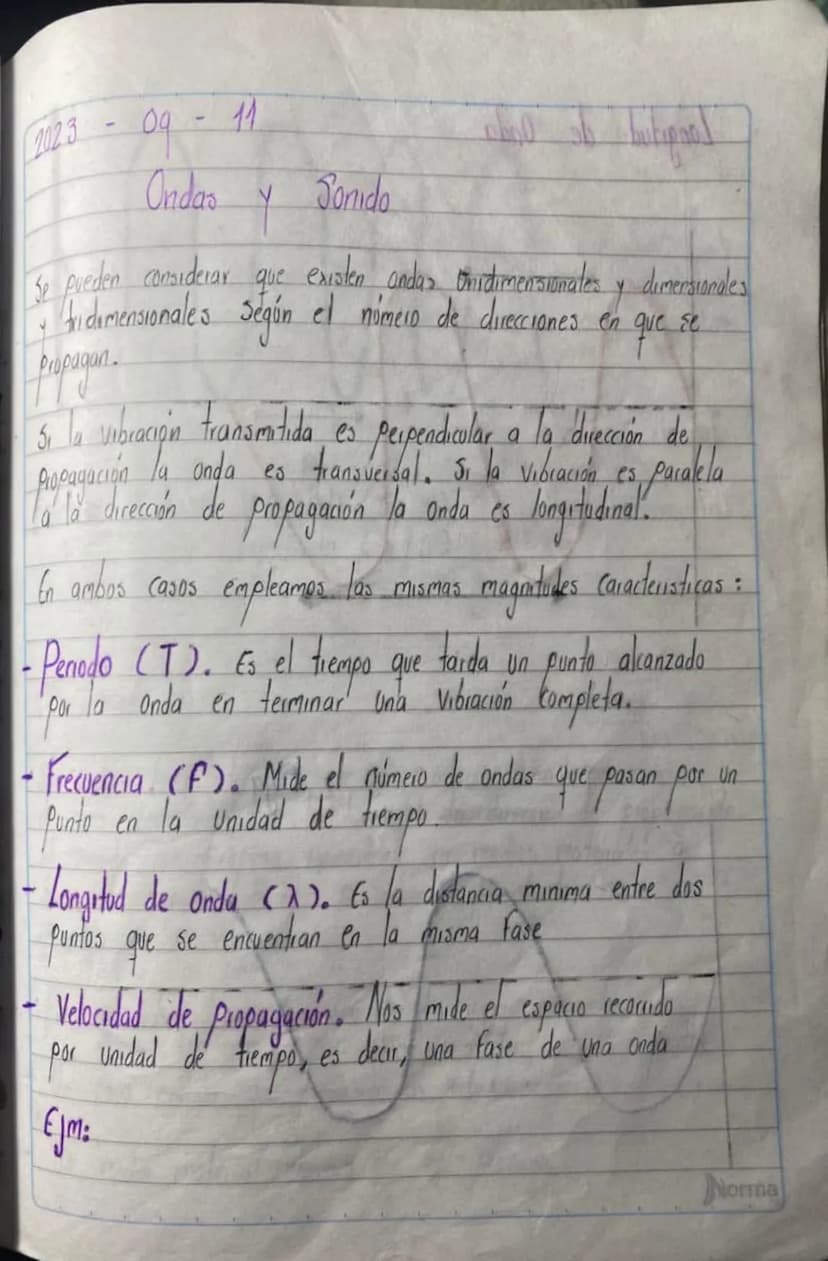 2023 - 09 - 11
Ondas y Sonido
Se pueden considerar que existen ondas Unidimensionales y dimensionales
y tridimensionales según el número de direcciones en que se
propagan.
Si la vibración transmitida es perpendicular a la dirección de
propagación la onda es transversal. Si la vibración es paralela
a la dirección de propagación la onda es longitudinal.
En ambos casos empleamos las mismas magnitudes características:
- Periodo (T). Es el tiempo que tarda un punto alcanzado
por la onda en terminar una vibración completa.
- Frecuencia (f). Mide el número de ondas que pasan por un
punto en la unidad de tiempo.
- Longitud de onda (λ). Es la distancia minima entre dos
puntos que se encuentran en la misma fase
- Velocidad de propagación. Nos mide el espacio recorrido
por unidad de tiempo, es decir, una fase de una onda
Ejm:
Norma